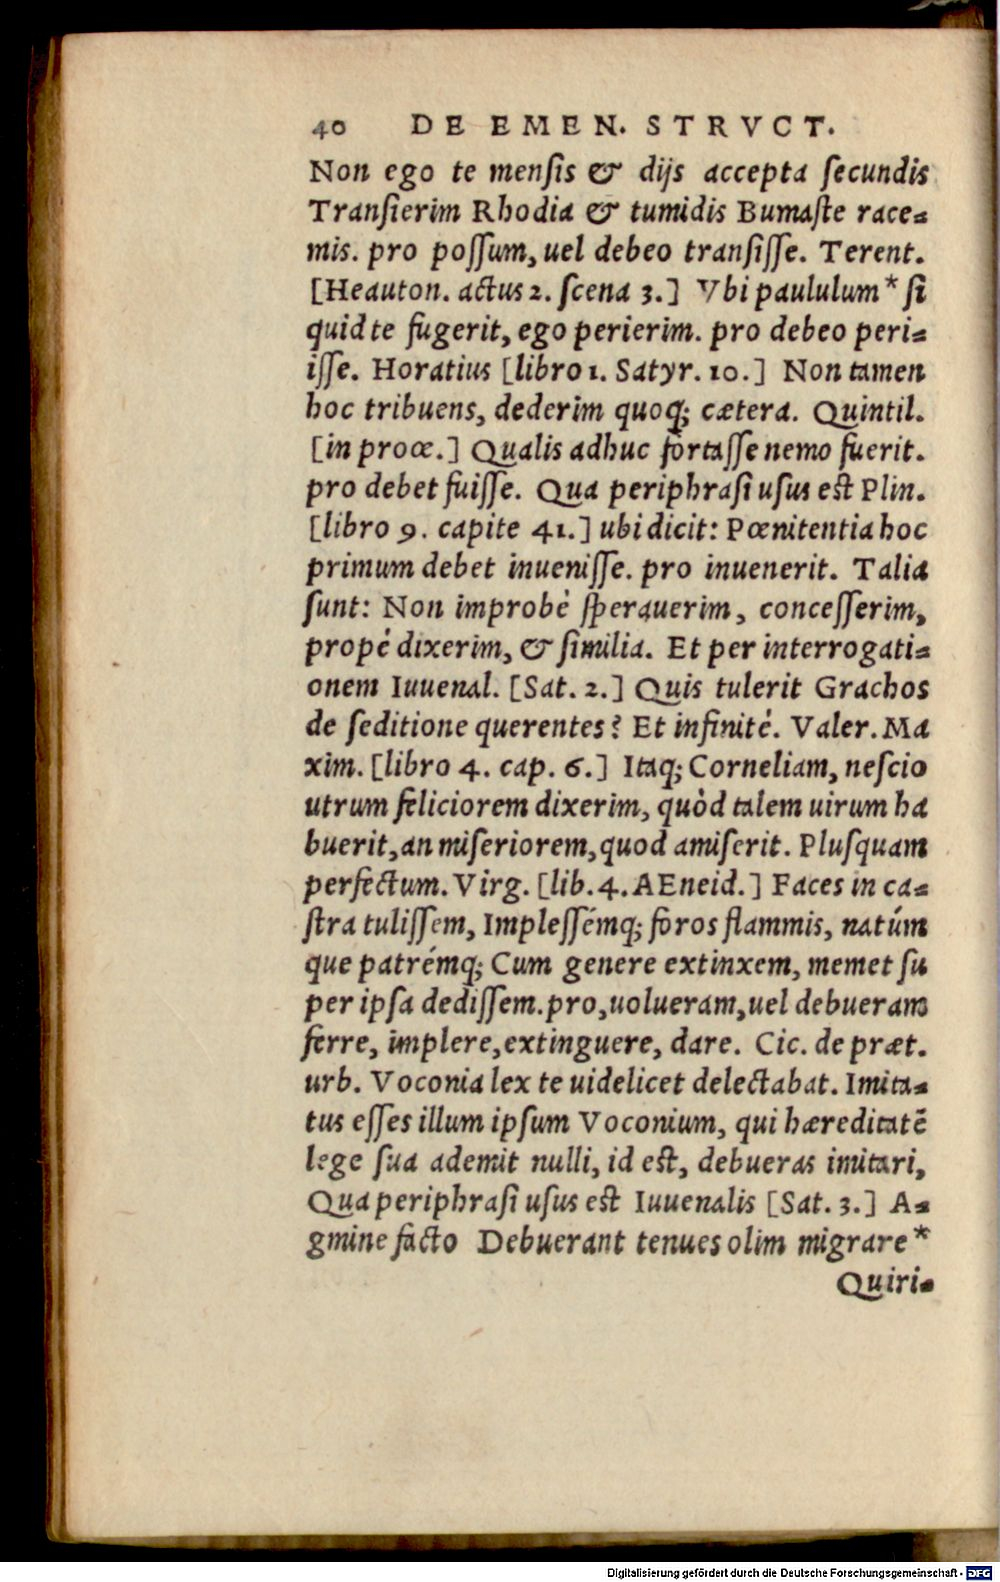 40 DE EMEN. STRVCT.
Non ego te mensis & dijs accepta secundis
Transierim Rhodia & tumidis Bumaste race-
mis. pro possum, uel debeo transisse. Terent.
[Heauton. actus 2. scena 3.] Vbi paululum* si
quid te fugerit, ego perierim. pro debeo peri-
isse. Horatius [libro 1. Satyr. 10.] Non tamen
hoc tribuens, dederim quoq; cætera. Quintil.
[in proœ.] Qualis adhuc fortasse nemo fuerit.
pro debet fuisse. Qua periphrasi usus est Plin.
[libro 9. capite 41.] ubi dicit: Pœnitentia hoc
primum debet inuenisse. pro inuenerit. Talia
sunt: Non improbè sperauerim, concesserim,
propè dixerim, & similia. Et per interrogati-
onem Iuuenal. [Sat. 2.] Quis tulerit Grachos
de seditione querentes? Et infinitè. Valer. Ma
xim. [libro 4. cap. 6.] Itaq; Corneliam, nescio
utrum feliciorem dixerim, quòd talem uirum ha
buerit, an miseriorem, quod amiserit. Plusquam
perfectum. Virg. [lib. 4. AEneid.] Faces in ca-
stra tulissem, Implessémq; foros flammis, natúm
que patrémq; Cum genere extinxem, memet su
per ipsa dedissem. pro, uolueram, uel debueram
ferre, implere, extinguere, dare. Cic. de præt.
urb. Voconia lex te uidelicet delectabat. Imita-
tus esses illum ipsum Voconium, qui hæreditatē
lege sua ademit nulli, id est, debueras imitari,
Qua periphrasi usus est Iuuenalis [Sat. 3.] A-
gmine facto Debuerant tenues olim migrare*
Quiri-
Digitalisierung gefördert durch die Deutsche Forschungsgemeinschaft - DFG